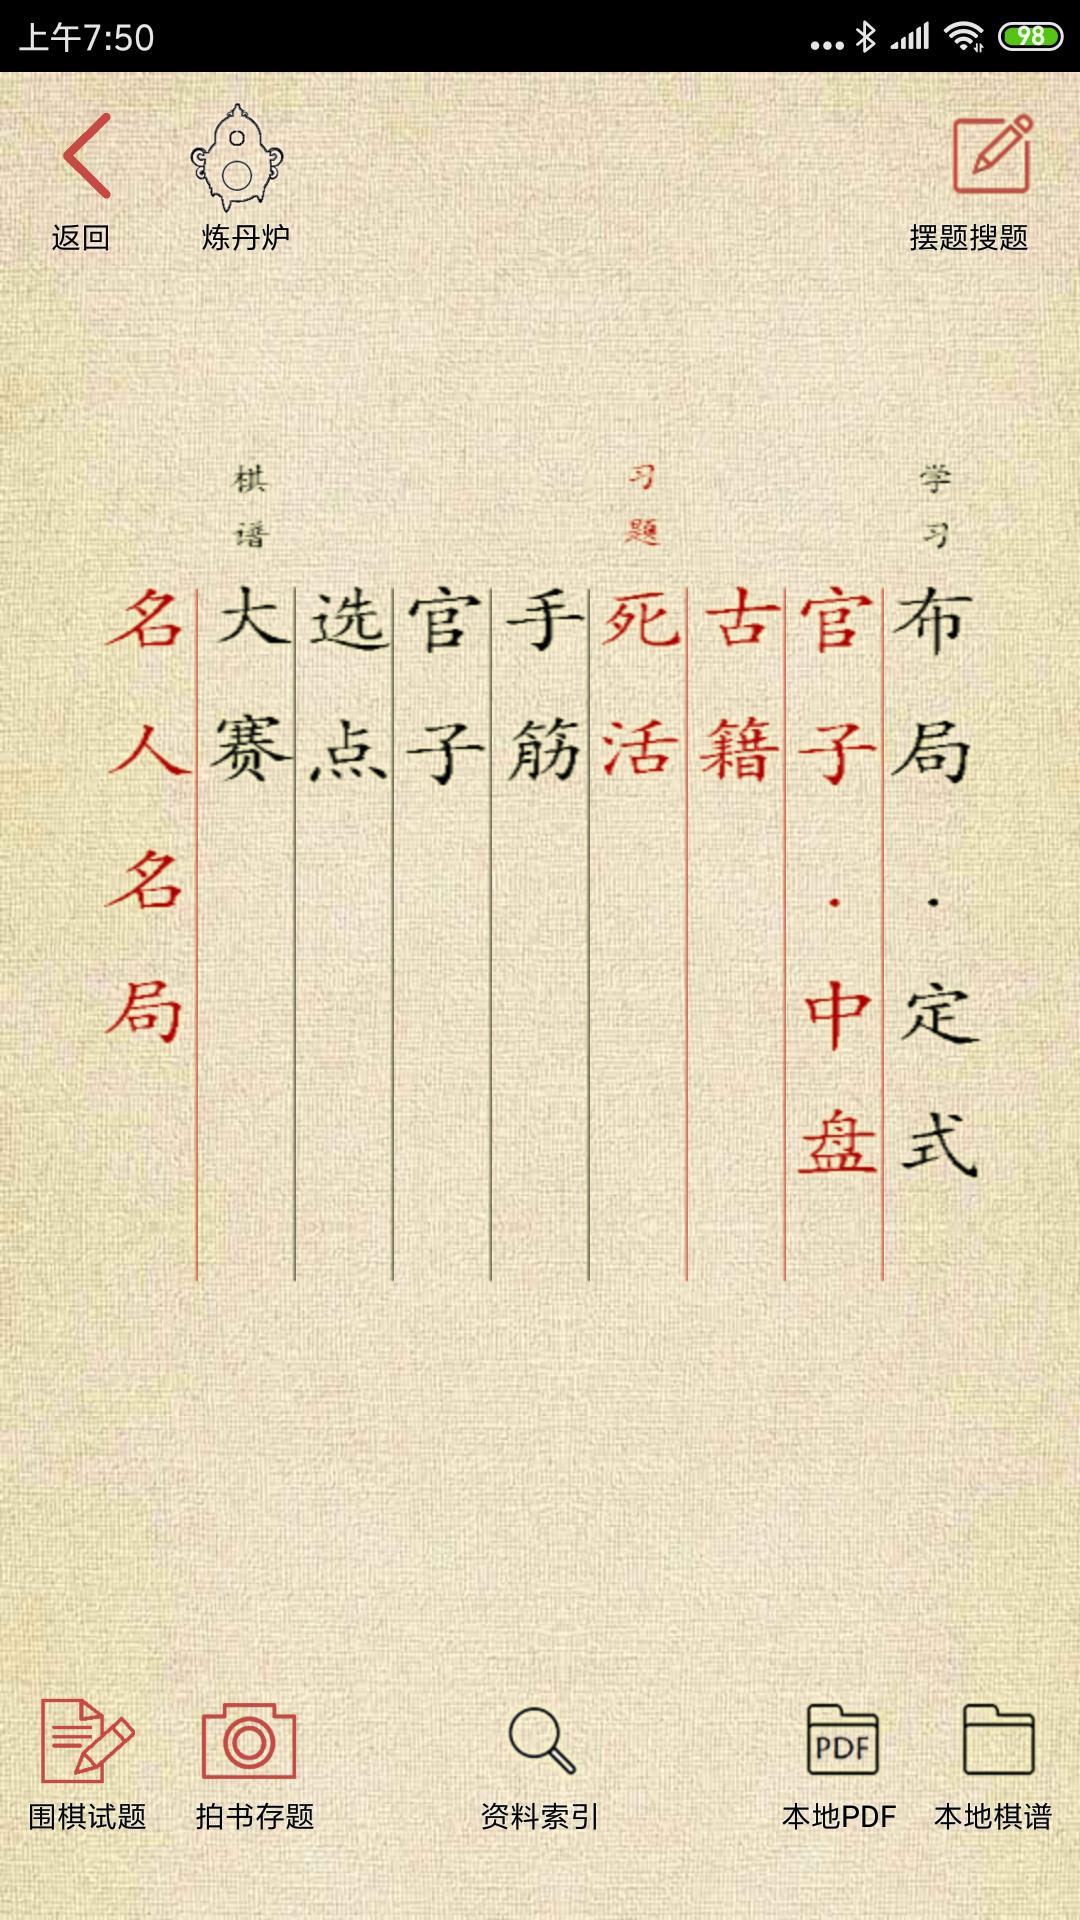 上午7:50
98
返回
炼丹炉
摆题搜题
学习
布局·定式
官子·中盘
习题
古籍
死活
手筋
官子
选点
棋谱
大赛
名人名局
PDF
围棋试题
拍书存题
资料索引
本地PDF
本地棋谱